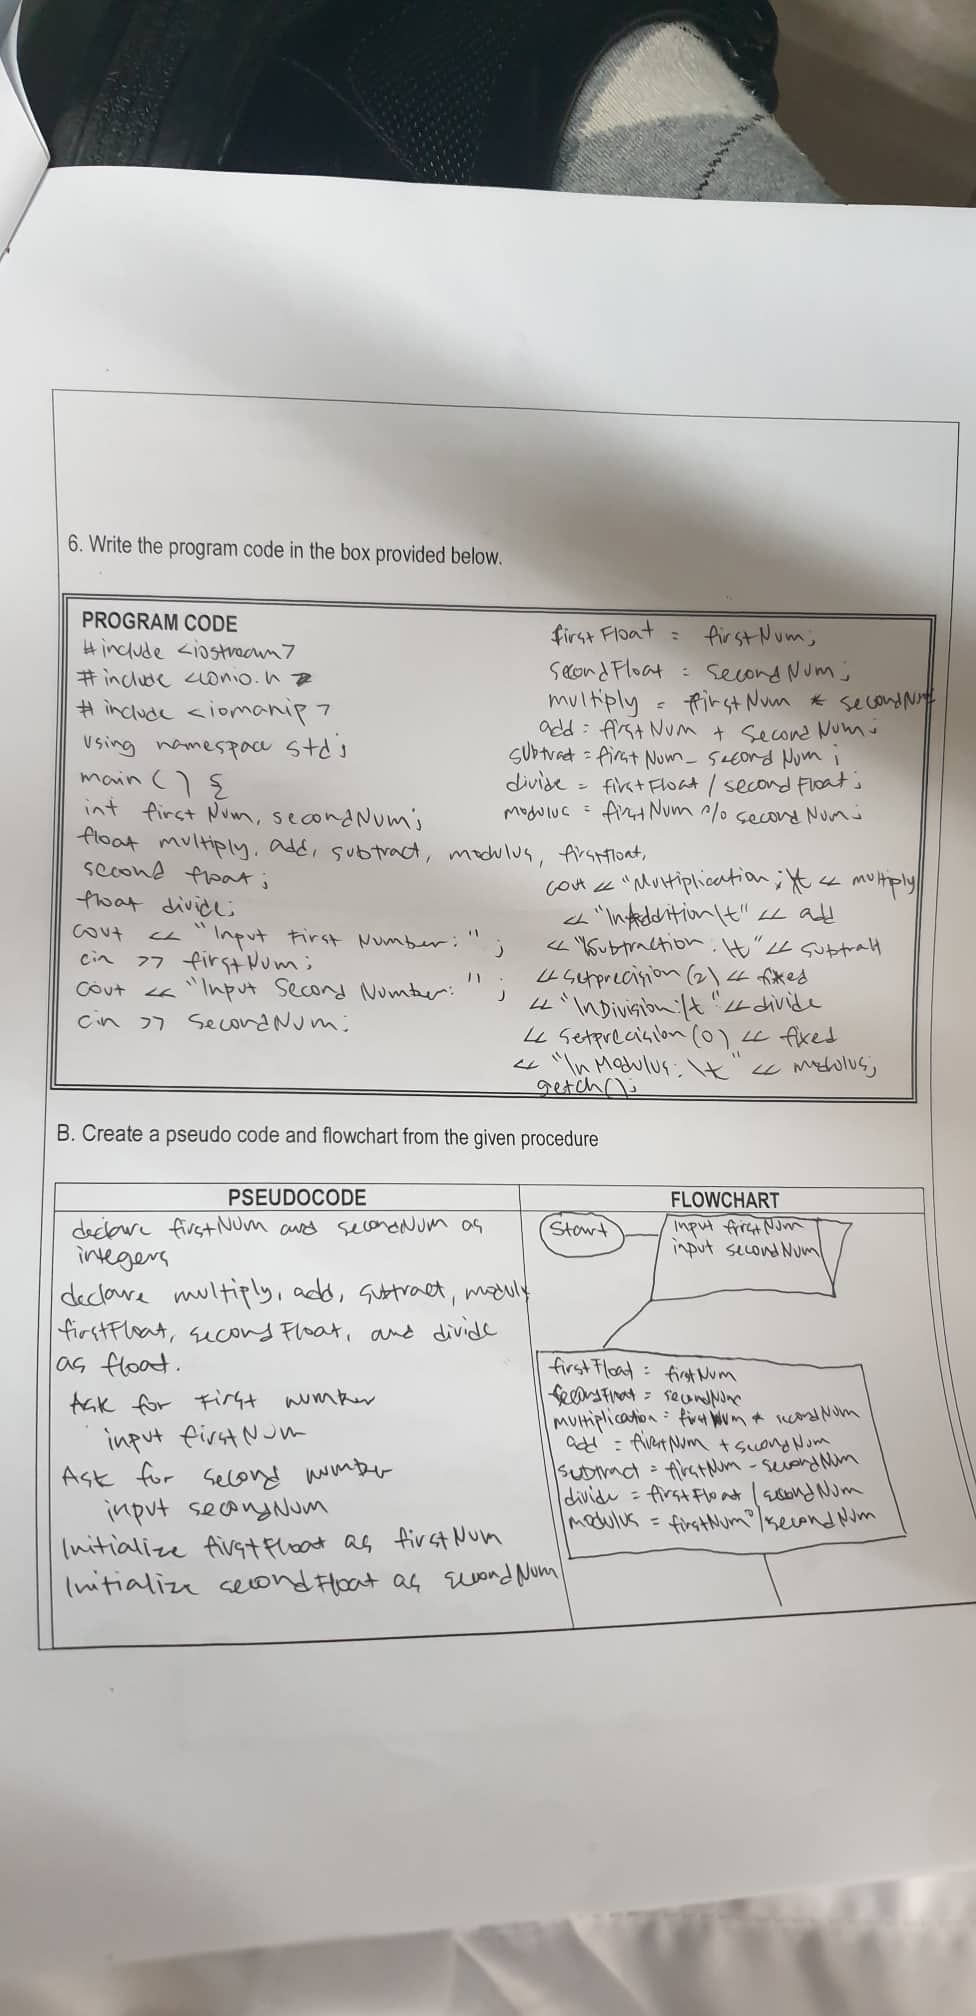 6. Write the program code in the box provided below.
PROGRAM CODE
#include <iostream>
#include <conio.h>
#include <iomanip>
using namespace std;
main () {
int firstNum, secondNum;
float multiply, add, subtract, modulus, firstFloat,
second float;
float divide;
cout << "Input First Number: " ;
cin >> firstNum;
cout << "Input Second Number: " ;
cin >> secondNum;
firstFloat = firstNum;
secondFloat = secondNum;
multiply = firstNum * secondNum
add = firstNum + secondNum;
subtract = firstNum - secondNum;
divide = firstFloat / secondFloat;
modulus = firstNum % secondNum;
cout << "Multiplication : \t << multiply
<< "\nAddition \t" << add
<< "\Subtraction : \t" << subtract
<< setprecision (2) << fixed
<< "\nDivision: \t" << divide
<< setprecision (0) << fixed
<< "\nModulus: \t" << modulus;
getch();
B. Create a pseudo code and flowchart from the given procedure
PSEUDOCODE
declare firstNum and secondNum as
integers
declare multiply, add, subtract,
firstFloat, secondFloat, and divide
as float.
Ask for First number
input firstNum
Ask for second number
input secondNum
Initialize firstFloat as firstNum
Initialize secondFloat as secondNum
FLOWCHART
Start
input firstNum
input secondNum
firstFloat = firstNum
secondFloat = secondNum
multiplication = firstNum * secondNum
add = firstNum + secondNum
subtract = firstNum - secondNum
divide = firstFloat / secondNum
modulus = firstNum % secondNum